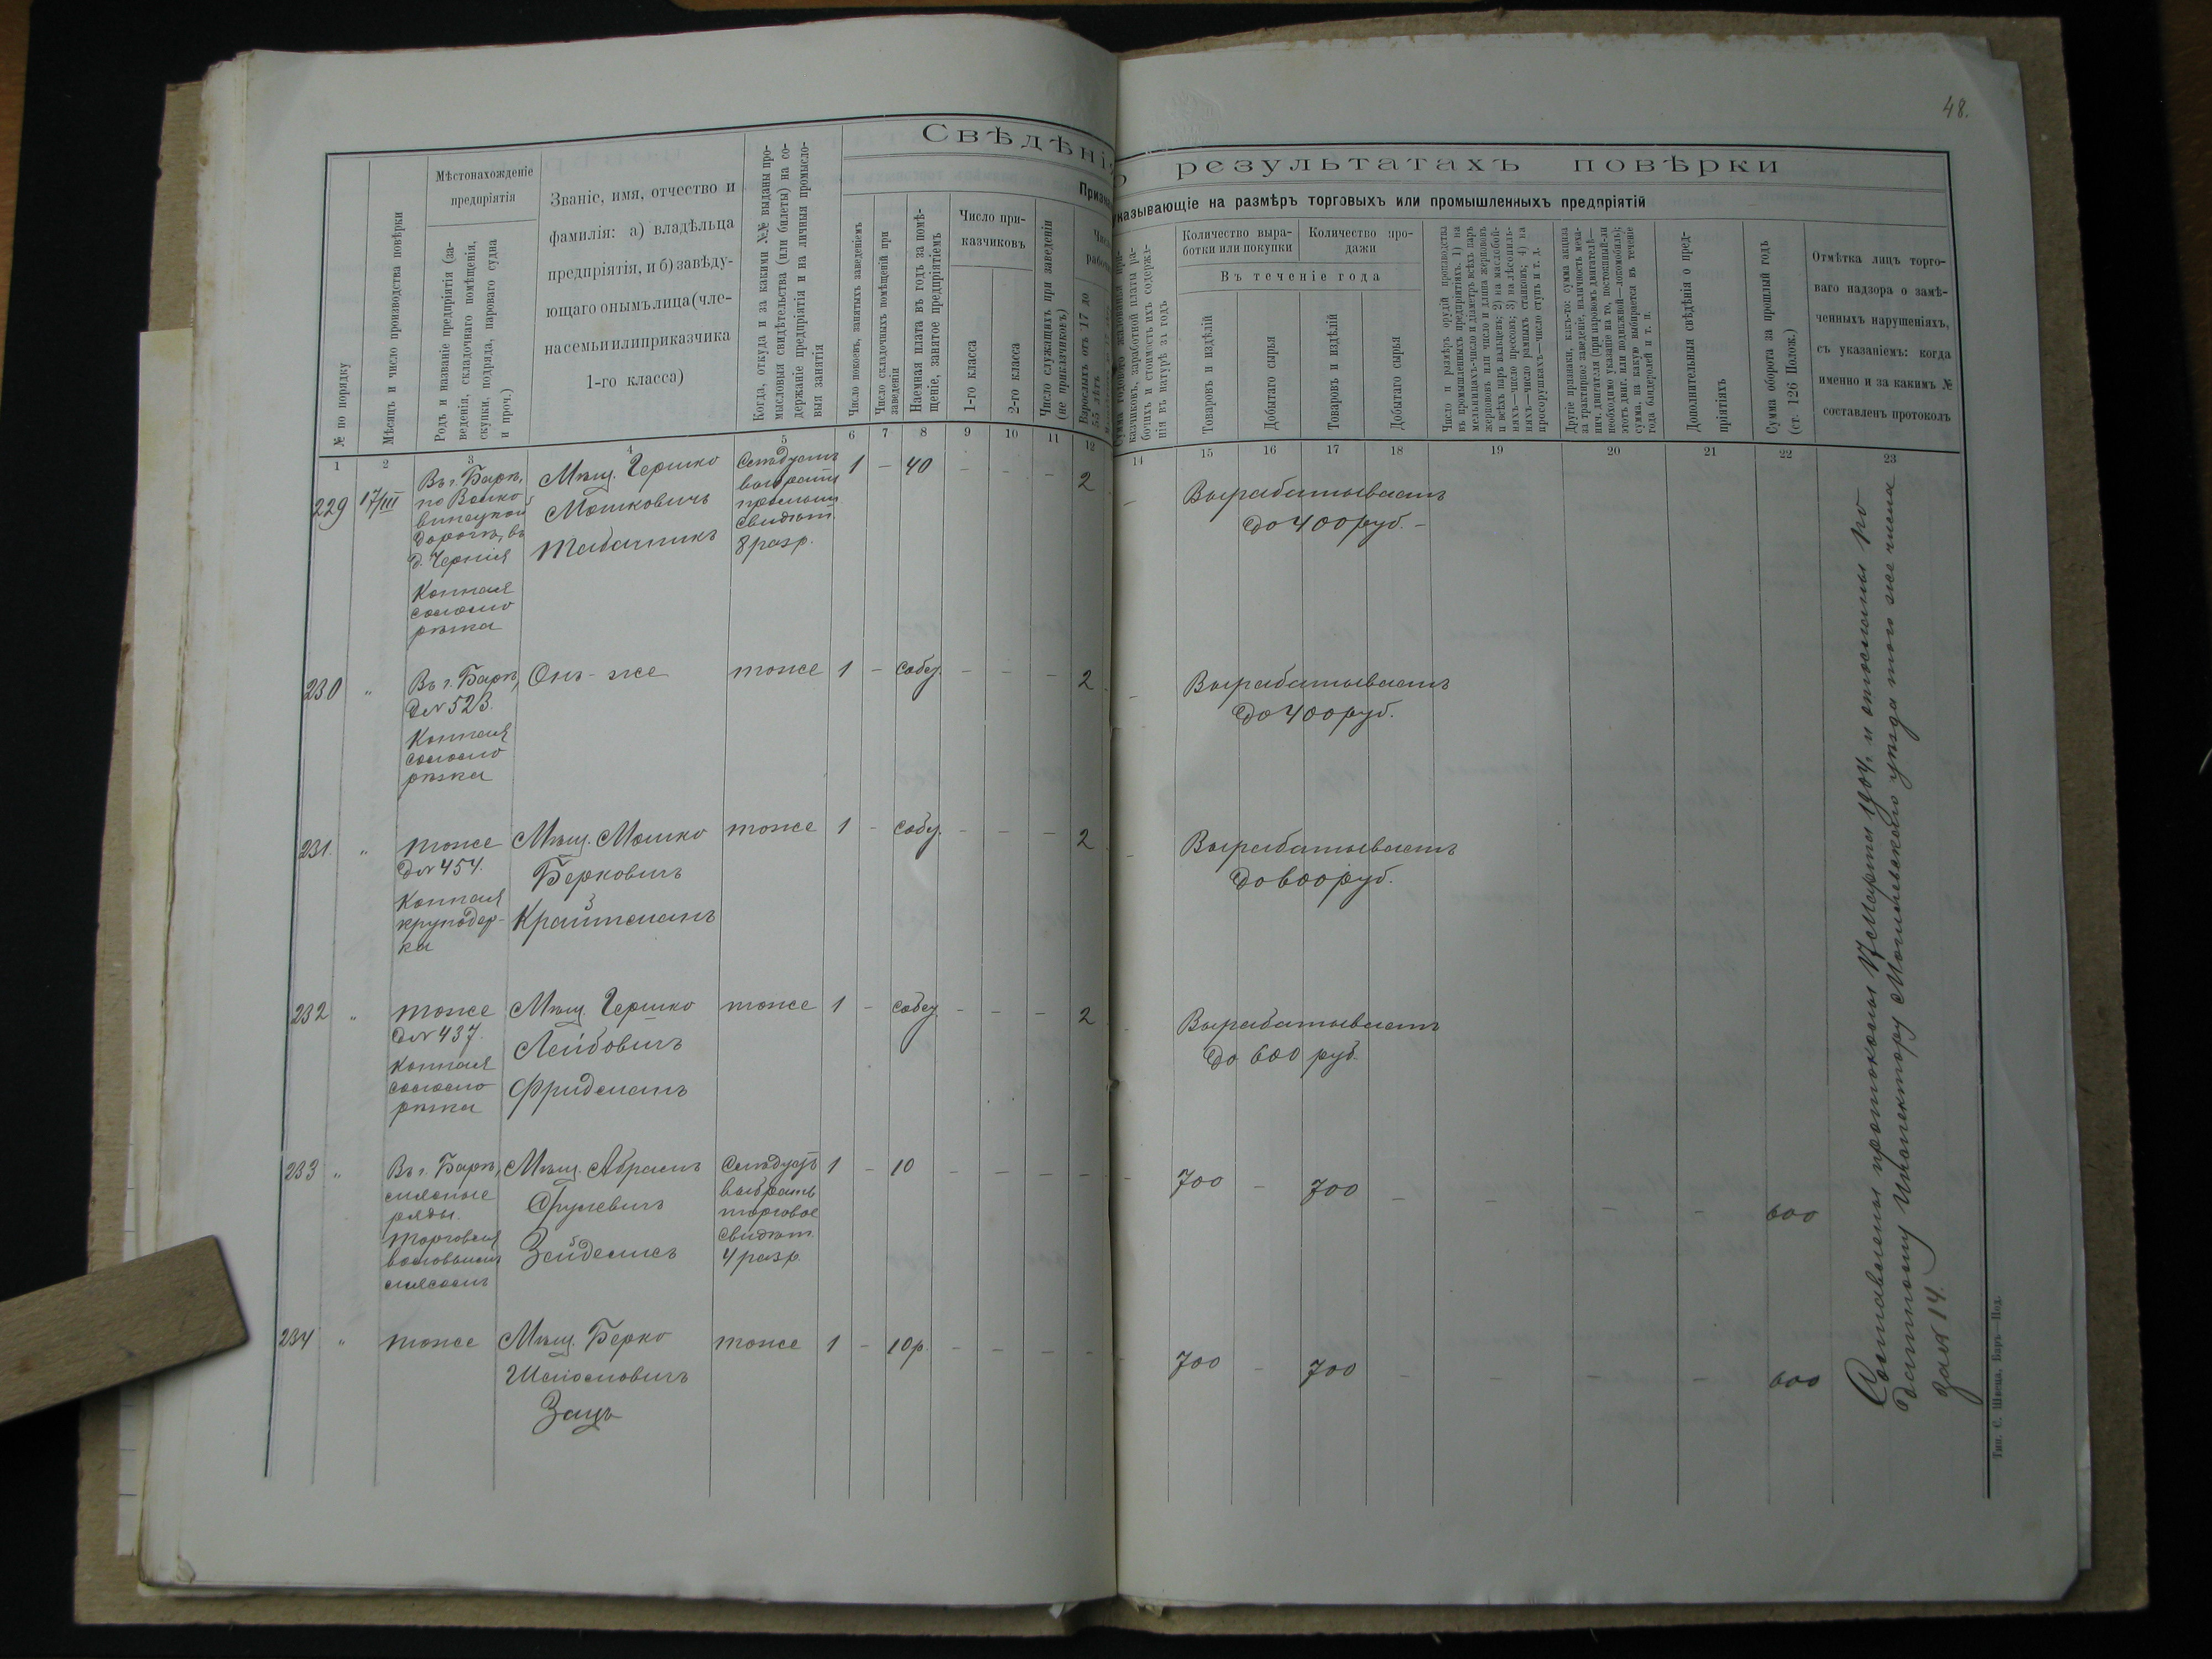 48.
Свѣдѣнія
о результатахъ повѣрки
Призна
указывающіе на размѣръ торговыхъ или промышленныхъ предпріятій
№ по порядку
Мѣсяцъ и число производства повѣрки
Мѣстонахожденіе
предпріятія
Родъ и названіе предпріятія (за-
веденія, складочнаго помѣщенія,
скупки, подряда, парового судна
и проч.)
Званіе, имя, отчество и
фамилія: а) владѣльца
предпріятія, и б) завѣду-
ющаго онымъ лица (чле-
на семьи или приказчика
1-го класса)
Когда, откуда и за какими №№ выданы про-
мысловыя свидѣтельства (или билеты) на со-
держаніе предпріятія и на личныя промысло-
выя занятія
Число покоевъ, занятыхъ заведеніемъ
Число складочныхъ помѣщеній при
заведеніи
Наемная плата въ годъ за помѣ-
щеніе, занятое предпріятіемъ
Число при-
казчиковъ
1-го класса
2-го класса
Число служащихъ при заведеніи
(не приказчиковъ)
Число
рабоч
Взрослыхъ отъ 17 до
55 лѣтъ
Сумма годового жалованья при-
казчиковъ, заработной платы ра-
бочихъ и стоимость ихъ содержа-
нія въ натурѣ въ годъ
Количество выра-
ботки или покупки
Количество про-
дажи
Въ теченіе года
Товаровъ и издѣлій
Добытаго сырья
Товаровъ и издѣлій
Добытаго сырья
Число и размѣръ орудій производства
въ промышленныхъ предпріятіяхъ: 1) на
мельницахъ—число и діаметръ всѣхъ паръ
жернововъ или число и длина жернововъ
и всѣхъ паръ вальцевъ; 2) на маслобой-
няхъ—число прессовъ; 3) на лѣсопиль-
няхъ—число рамныхъ станковъ; 4) на
просорушкахъ—число ступъ и т. д.
Другіе признаки, какъ-то: сумма акциза
за трактирное заведеніе, наличность меха-
нич. двигателя (при паровомъ двигателѣ—
необходимо указаніе на то, постоянный-ли
этотъ двиг. или подвижной—локомобиль);
сумма, на какую выбирается въ теченіе
года бандеролей и т. п.
Дополнительныя свѣдѣнія о пред-
пріятіяхъ
Сумма оборота за прошлый годъ
(ст. 126 Полож.)
Отмѣтка лицъ торго-
ваго надзора о замѣ-
ченныхъ нарушеніяхъ,
съ указаніемъ: когда
именно и за какимъ №
составленъ протоколъ
1 2 3 4 5 6 7 8 9 10 11 12
14 15 16 17 18 19 20 21 22 23
229 17/III
Въ г. Барѣ,
по Волко
винецкой
дорогѣ, въ
д. Чернія
Конная
соломо
рѣзка
Мѣщ. Гершко
Мошковичъ
Табачникъ
Слѣдуетъ
выбрать
промысл.
свидѣт.
8 разр.
1 – 40 – – – 2
–
Вырабатываетъ
до 400 руб. –
230 „
Въ г. Барѣ,
д№ 523.
Конная
соломо
рѣзка
Онъ-же
тоже 1 – собст. – – – 2
–
Вырабатываетъ
до 400 руб.
231. „
тоже
д№ 454.
Конная
круподер-
ка
Мѣщ. Мошко
Берковичъ
Крайтманъ
тоже 1 – собст. – – – 2
–
Вырабатываетъ
до 600 руб.
232 „
тоже
д№ 437.
Конная
соломо
рѣзка
Мѣщ. Гершко
Лейбовичъ
Фридманъ
тоже 1 – собст. – – – 2
–
Вырабатываетъ
до 600 руб.
233 „
Въ г. Барѣ,
мясные
ряды.
Торговля
воловьимъ
мясомъ
Мѣщ. Абрамъ
Сруневичъ
Зейделисъ
Слѣдуетъ
выбрать
торговое
свидѣт.
4 разр.
1 – 10 – – – –
– 700 – 700 – – – – 600
234 „
тоже
Мѣщ. Берко
Шліомовичъ
Зацъ
тоже 1 – 10 р. – – – –
– 700 – 700 – – – – 600
Составлены протоколы 17 Марта 1904. и отосланы По
датному Инспектору Могилевскаго уѣзда того же числа
за № 14.
Тип. С. Швеца, Баръ—Под.